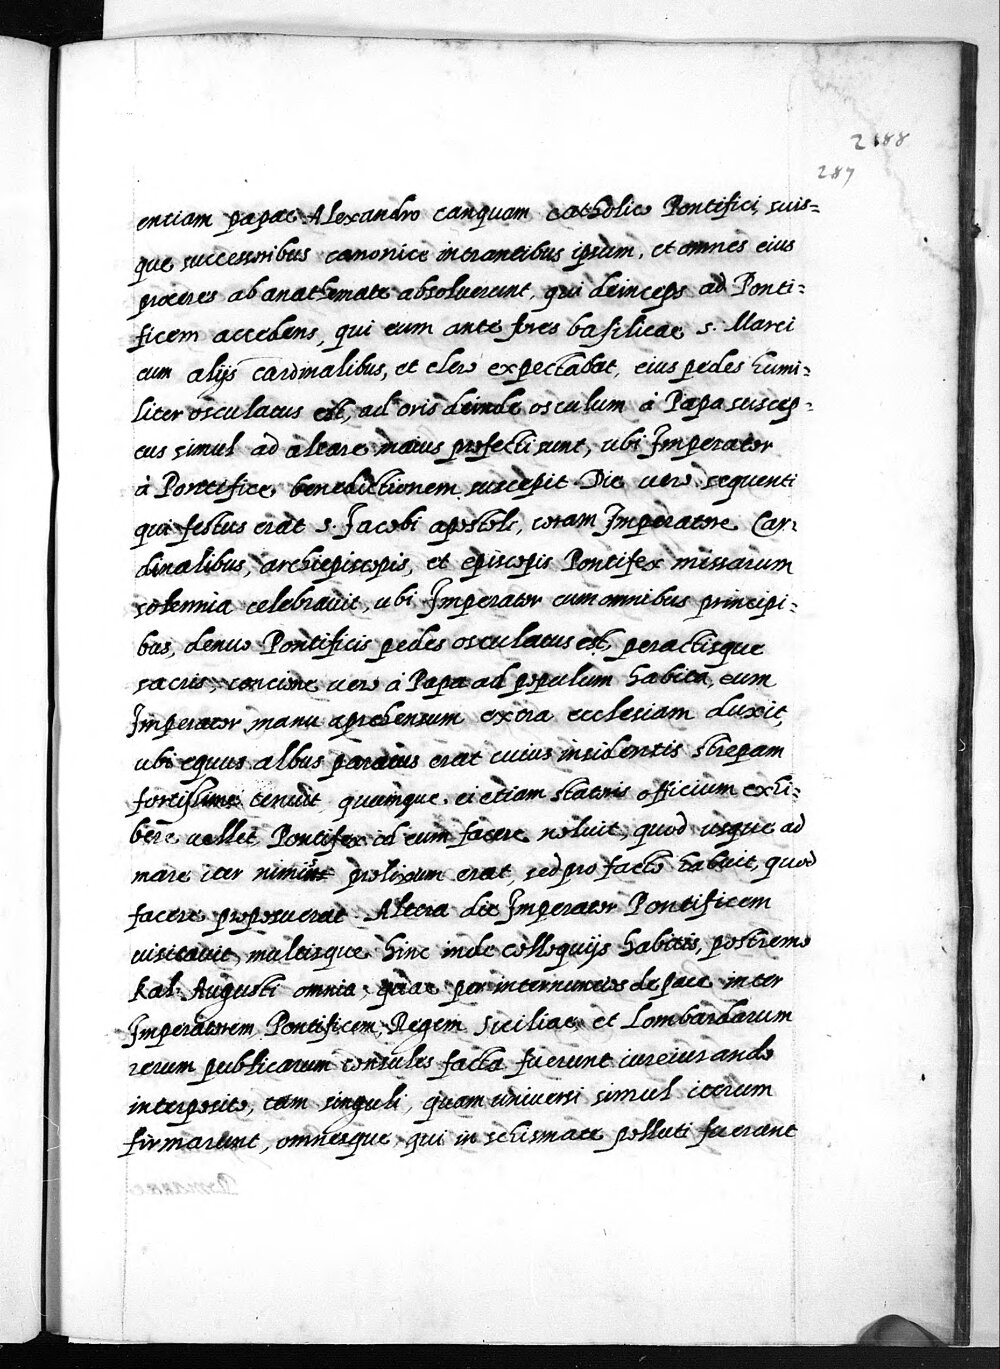 2188
287
entiam papae Alexandro tanquam catholico Pontifici, suis=
que successoribus canonice intrantibus ipsum, et omnes eius
proceres ab anathemate absoluerunt, qui deinceps ad Ponti=
ficem accedens, qui eum ante fores basilicae s. Marci
cum alijs cardinalibus, et clero expectabat, eius pedes humi=
liter osculatus est, ad oris deinde osculum à Papa suscep=
tus simul ad altare maius profecti sunt, ubi Imperator
à Pontifice benedictionem suscepit. Die uero sequenti
qui festus erat s. Jacobi apostoli, coram Imperatore Car=
dinalibus, archiepiscopis, et episcopis Pontifex missarum
solemnia celebrauit, ubi Imperator cum omnibus principi=
bus, denuo Pontificis pedes osculatus est, peractisque
sacris, concione uero à Papa ad populum habita, eum
Imperator manu aprehensum extra ecclesiam duxit,
ubi equus albus paratus erat cuius insidentis strepam
fortissime tenuit, quumque ei etiam statoris officium exhi=
bere uellet, Pontifex id eum facere noluit, quod usque ad
mare iter nimis prolixum erat, sed pro facto habuit, quod
facere proposuerat. Altera die Imperator Pontificem
uisitauit, multisque hinc inde colloquijs habitis, postremo
Kal. Augusti omnia, quae per internuncios de pace inter
Imperatorem, Pontificem, Regem Siciliae et Lombardarum
rerum publicarum consules facta fuerunt iureiurando
interposito, tam singuli, quam uniuersi simul iterum
firmarunt, omnesque qui in schismate polluti fuerant